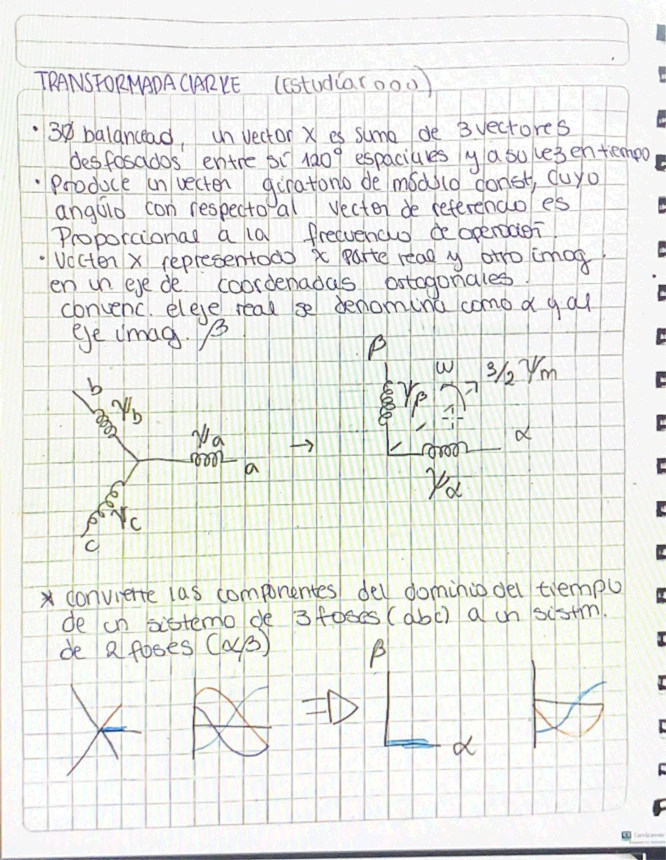 TRANSFORMADA CLARKE (Estudiar ooo)
• 3Ø balancead, un vector X es suma de 3 vectores
desfasados entre sí 120° espaciales y a su vez en tiempo
• Produce un vector giratorio de módulo const, cuyo
angúlo con respecto al vector de referencia es
Proporcional a la frecuencia de operación.
• Vector X representado x parte real y otro imag.
en un eje de coordenadas ortogonales.
convenc. el eje real se denomina como α y al
eje imag. β
b
ψb
ψa
a
ψc
c
→
β
ψβ
ω
3/2 ψm
α
ψα
* convierte las componentes del dominio del tiempo
de un sistema de 3 fases (abc) a un sistm.
de 2 fases (αβ)
β
α
CamScanner